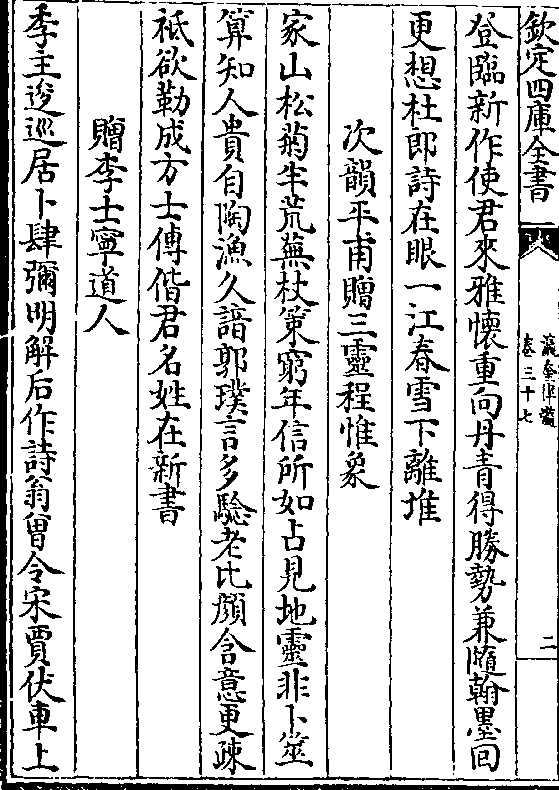 欽定四庫全書
瀛奎律髓
卷三十七
二
登臨新作使君來雅懷重向丹青得勝勢兼隨翰墨回
更想杜郎詩在眼一江春雪下離堆
次韻平甫贈三靈程惟象
家山松菊半荒蕪杖策窮年信所如占見地靈非卜筮
算知人貴自陶漁久諳郭璞言多驗老比顔含意更疎
祗欲勒成方士傳偕君名姓在新書
贈李士寧道人
季主逡巡居卜肆彌明解后作詩翁曾令宋賈伏車上